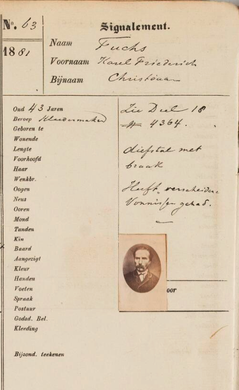 No. 63
Signalement.
1881
Naam Fuchs
Voornaam Karel Friederich
Bijnaam Christiaan
Oud 43 Jaren Zie Deel 18
Beroep Kleedermaker No 4364.
Geboren te
Wonende
Lengte diefstal met
Voorhoofd braak
Haar
Wenkbr.
Oogen Heeft verscheiden
Neus Vonnissen gehad.
Ooren
Mond
Tanden
Kin
Baard
Aangezigt
Kleur
Handen oor
Voeten
Spraak
Postuur
Godsd. Bel.
Kleeding
Bijzond. teekenen